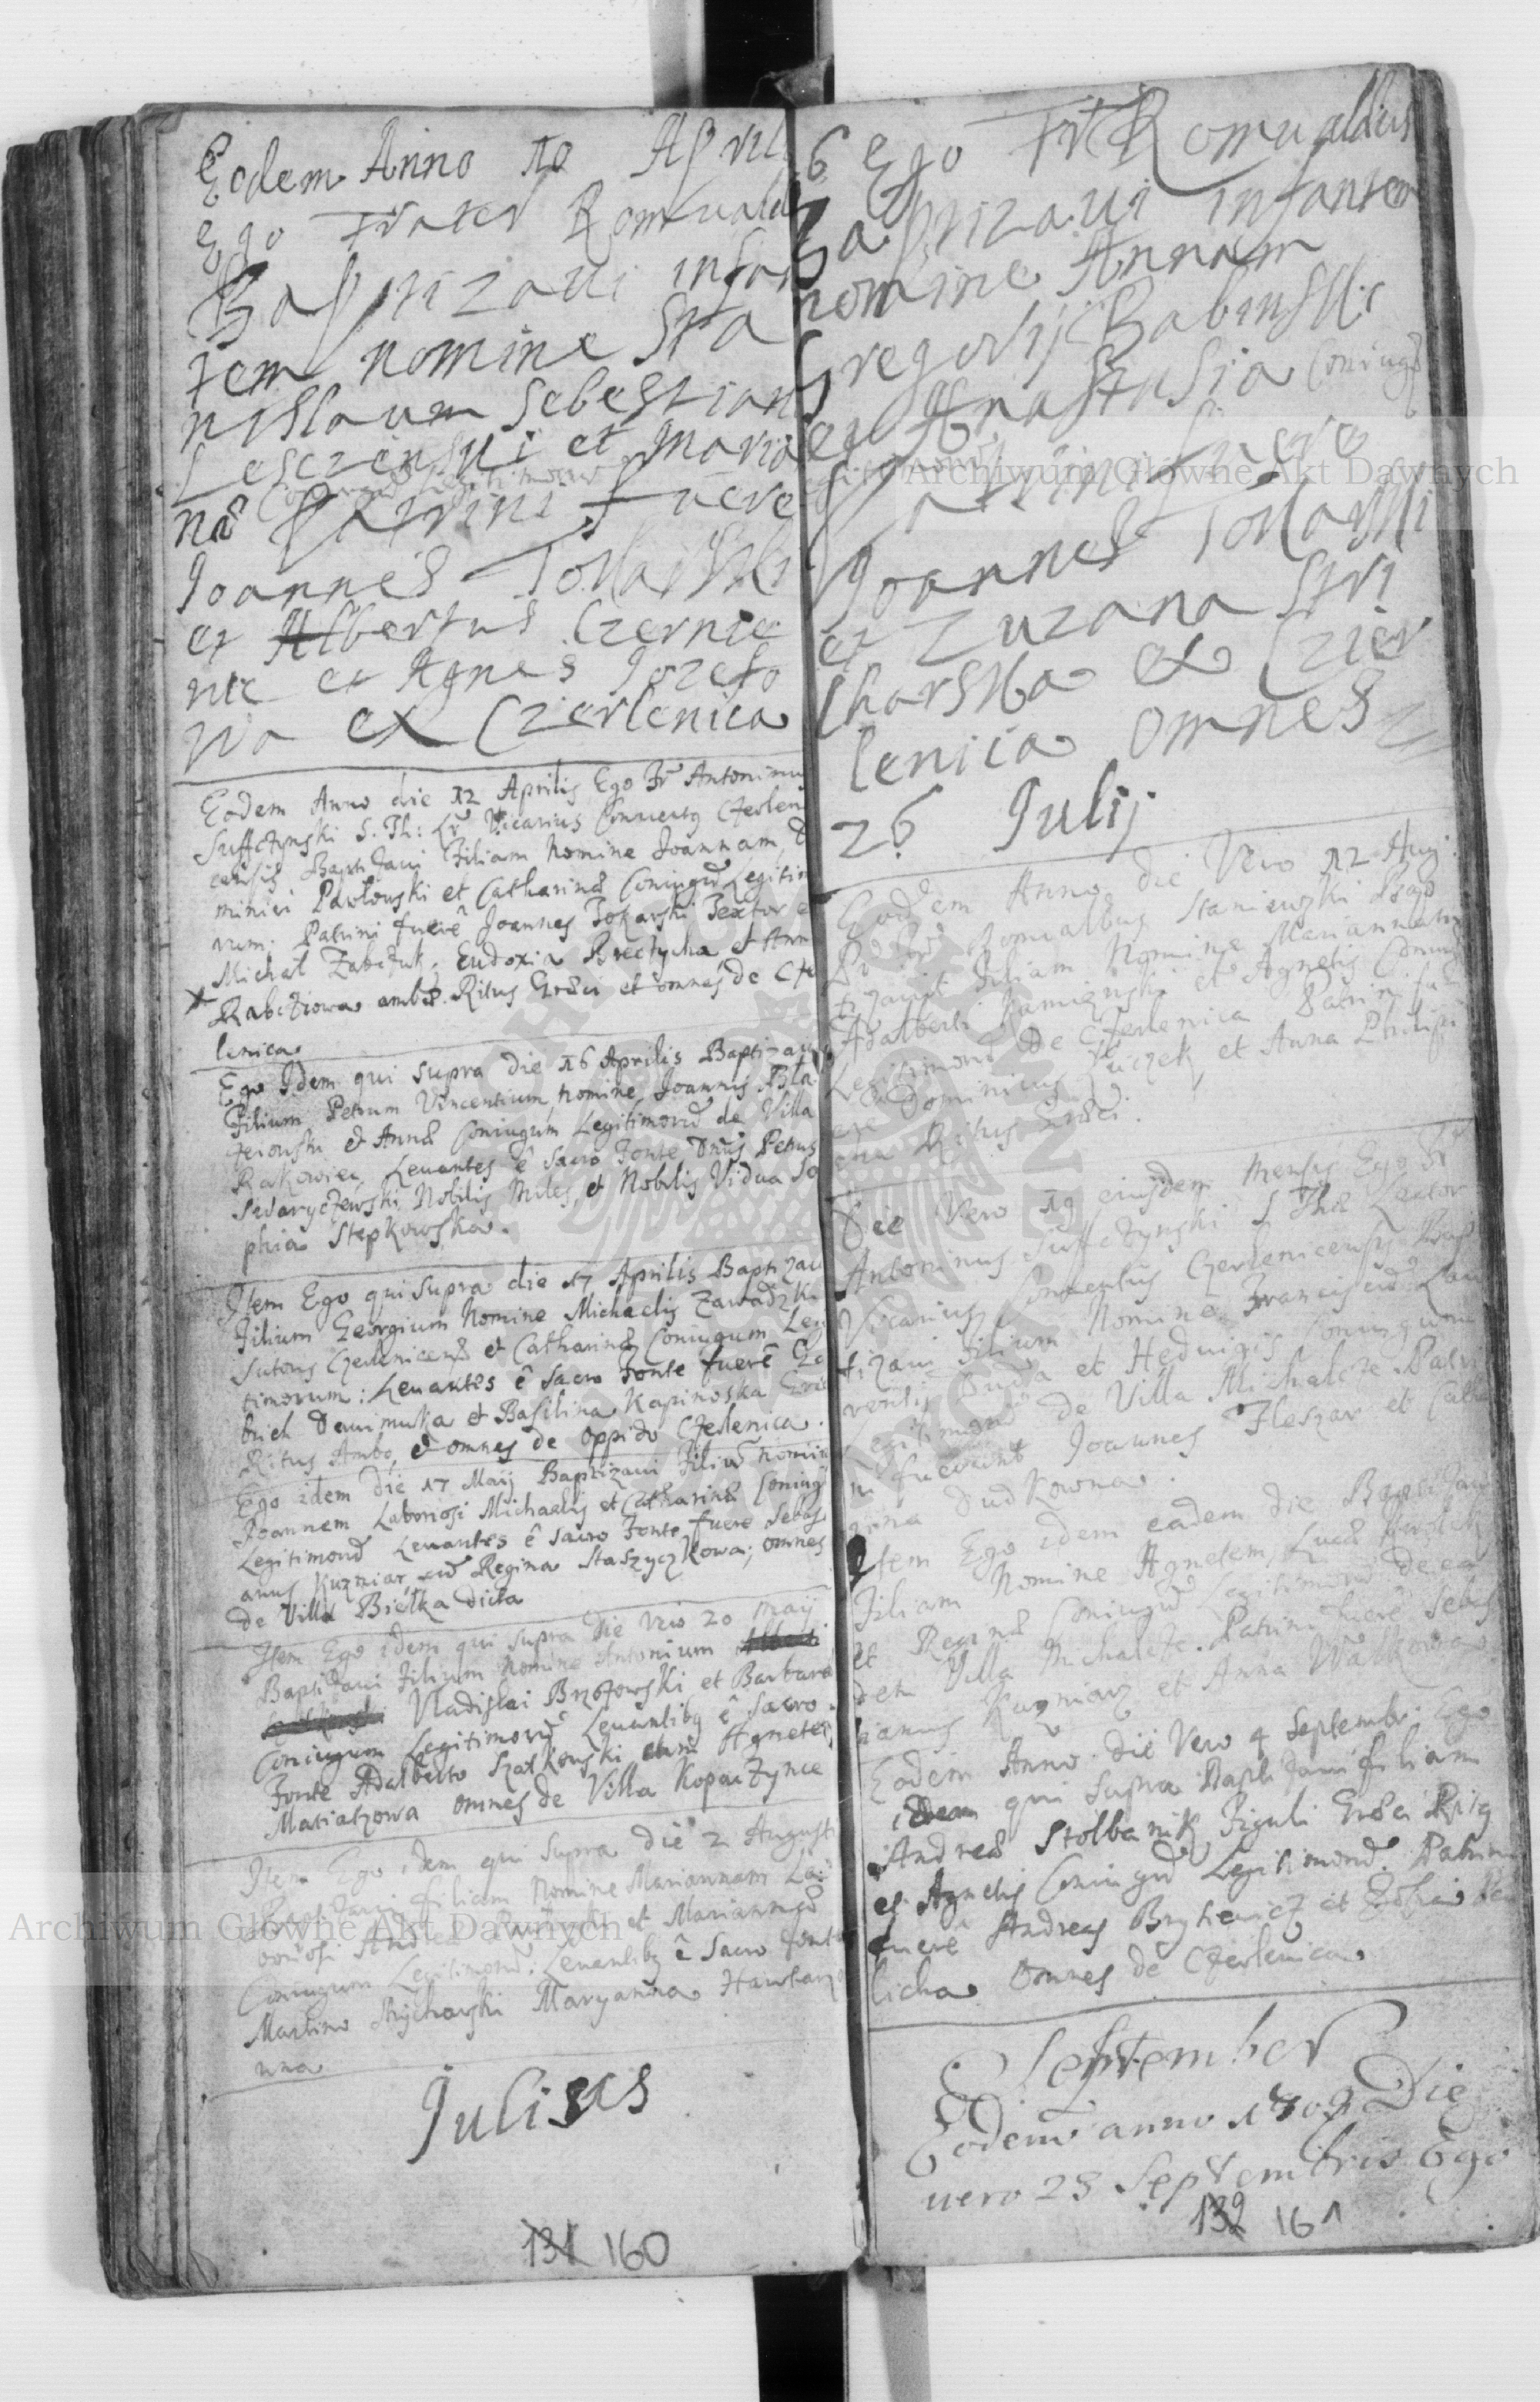 Eodem Anno 10 April
Ego Frater Romuald
Baptizaui infan
tem nomine Sta
nislaum Sebestian
Lesczenski et Maria
Coniugum Legitimorum
næ Patrini fuere
Joannes Tokarski
et Albertus Czernie
nic et Agnes Jozefo
wa ex Czerlenica
Eodem Anno die 12 Aprilis Ego Fr Antoninus
Suffczynski S. Th: Lr Vicarius Conuentg Czerleni
censis Baptizaui Filiam Nomine Joannam, D
minici Pawłowski et Catharinæ Coniugũ Legitim
rum. Patrini fuerê Joannes Tokarski Textor e
Michał Zabczuk, Eudoxia et Ann
Rabcziowa ambæ Ritus Græci et omnes de Cze
lenica
Ego Idem qui Supra die 16 Aprilis Baptizaui
Filium Petrum Vincentium nomine, Joannis Bła
żeiowski et Annæ Coniugum Legitimorũ de Villa
Rakowiec, Leuantes ê Sacro Fonte Dñus Petrus
Swaryczewski Nobilis Miles, et Nobilis Vidua So
phia Stepkowska.
Item Ego qui Supra die 17 Aprilis Baptizaui
Filium Georgium Nomine Michaelis Zawadzki
Sutoris Czerlenicens et Catharinæ Coniugum Legi
timorum: Leuantes ê Sacro Fonte fuerê
brich et Basilina Kapinoska Græci
Ritus Ambo, et omnes de Oppido Czerlenica.
Ego idem die 17 Maij Baptizaui Filiũ nomine
Joannem Laboriosi Michaelis et Catharinæ Coniug
Legitimorũ Leuantes ê Sacro Fonte fuere Sebasti
anus Kuzniar cũ Regina Staszyczkowa; omnes
de Villa Biełka dicta
Item Ego idem qui Supra Die Vero 20 Maij
Baptizaui Filium nomine Antonium
Vladislai Brzozowski et Barbaræ
Coniugum Legitimorũ Leuantibg ê Sacro
Fonte Adalberto Szatkowski cum Agnete
Maciaszowa omnes de Villa Kopaczynce
Item Ego idem qui Supra die 2 Augusti
Baptizaui filiam Nomine Mariannam La
boriosi Andreæ et Mariannæ
Coniugum Legitimorũ: Leuantibg ê Sacro Fonte
Martino Strycharski Maryanna
wna
Julius
131 160
6 Ego Fr Romualdus
Baptizaui infantem
nomine Annam
Gregorij Babinski
et Anastasia Coniugũ
Patrini fuere
Joannes Tokarski
et Zuzana Stri
charska ex Czer
lenica omnes
26 Julij
Eodem Anno die Vero 12 Aug:
Pr Fr Romualdus Staniewski Bap
tizauit Filiam Nomine Mariannam
Adalberti et Agnetis Coniug
Legitimorũ De Czerlenica Patrini fu
ere Dominicus Kuczek, et Anna Philipi
ona Ritus Græci.
Die Vero 19 eiusdem Mensis Ego Fr
Antoninus Suffczynski S Thæ Lector
Vicarius Conuentus Czerlenicensis Bap
tizaui Filium Nomine Franciscũ Lau
rentij Duda et Heduigis Coniugum
Legitimorũ de Villa Michalcze. Patri
ni fuerunt Joannes Fleszar et Catha
rina Dudkowna.
Item Ego idem eadem die Baptizaui
Filiam Nomine Agnetem, Lucæ
et Reginæ Coniugũ Legitimorũ de ea
dem Villa Michalcze. Patrini fuerê Sebas
tianus Kuzniarz et Anna Wałkowna
Eodem Anno. die Vero 4 Septembr: Ego
idem qui Supra Baptizaui filiam
Andreæ Stolbanik Figuli Græci Ritg
et Agnetis Coniugũ Legitimorũ. Patrini
fuerê Andreas et Zofia
licha Omnes de Czerlenica
September
Eodem anno 1709 Die
uero 23 Septembris Ego
132 161
Archiwum Główne Akt Dawnych
Archiwum Główne Akt Dawnych